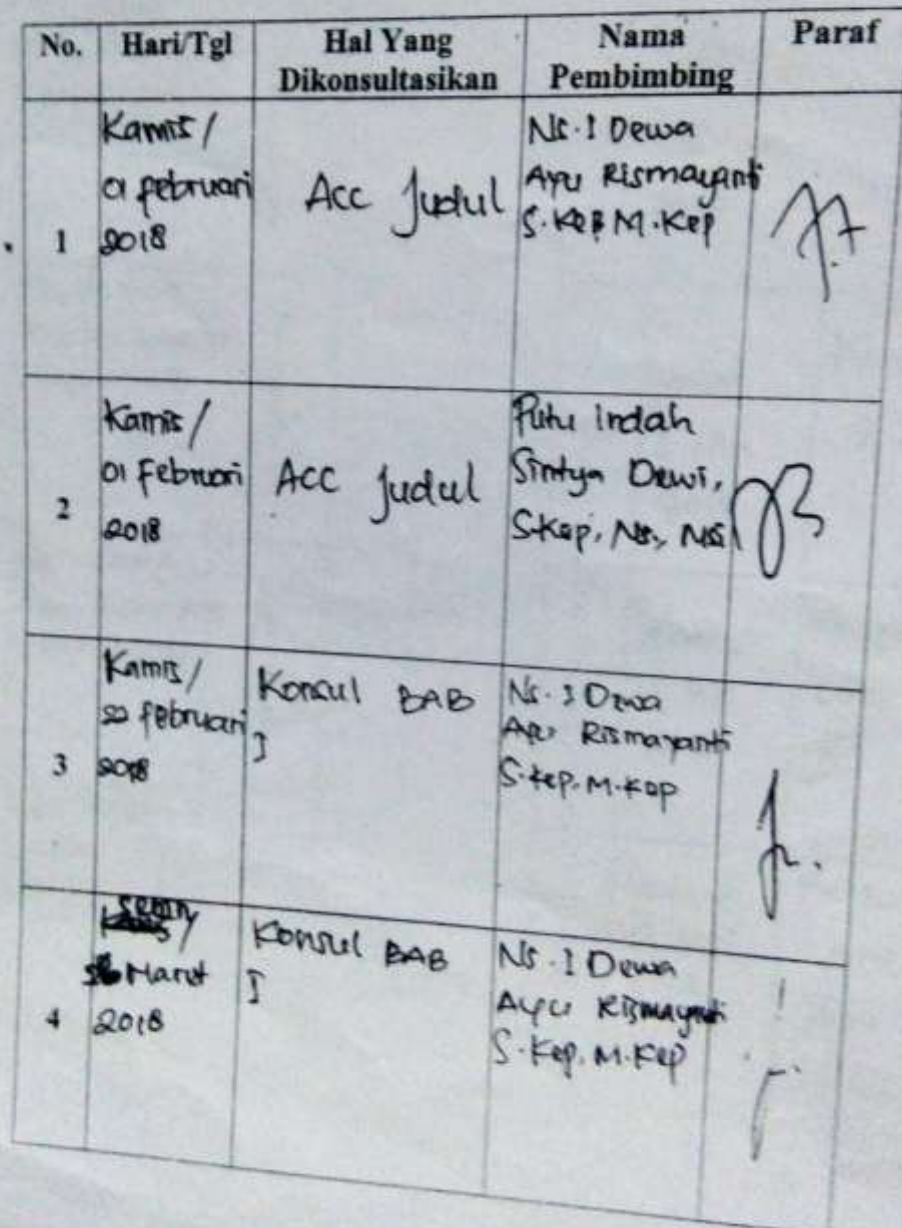 No. Hari/Tgl Hal Yang Dikonsultasikan Nama Pembimbing Paraf
1
Kamis /
01 februari
2018
Acc Judul
Ns. I Dewa
Ayu Rismayanti
S.Kep M.Kep
2
Kamis /
01 Februari
2018
Acc Judul
Putu Indah
Sintya Dewi,
S.Kep, Ns.,
3
Kamis /
februari
2018
Konsul BAB
I
Ns. I Dewa
Ayu Rismayanti
S.Kep. M.Kep
4
Senin /
Maret
2018
Konsul BAB
I
Ns. I Dewa
Ayu Rismayanti
S.Kep. M.Kep